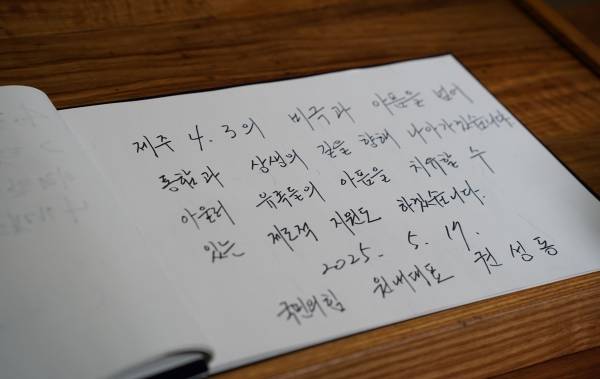 제주 4.3의 비극과 아픔을 넘어
통합과 상생의 길을 향해 나아가겠습니다
아울러 유족들의 아픔을 치유할 수
있는 제도적 지원도 하겠습니다.
2025. 5. 17.
국민의힘 원내대표 권성동